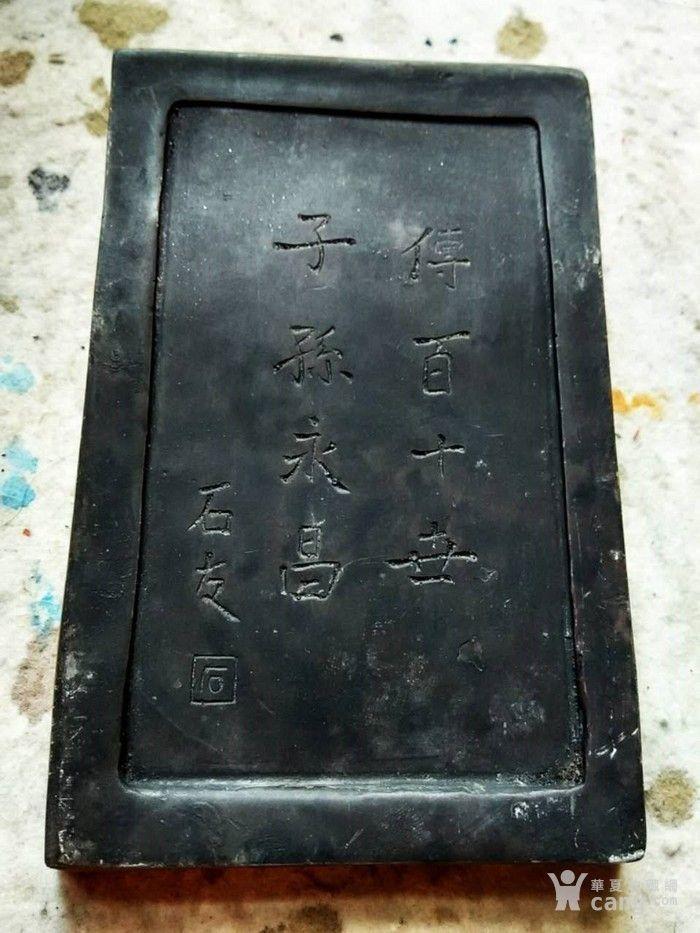 傳百十世
子孫永昌
石友
石
華夏收藏網
cang.com